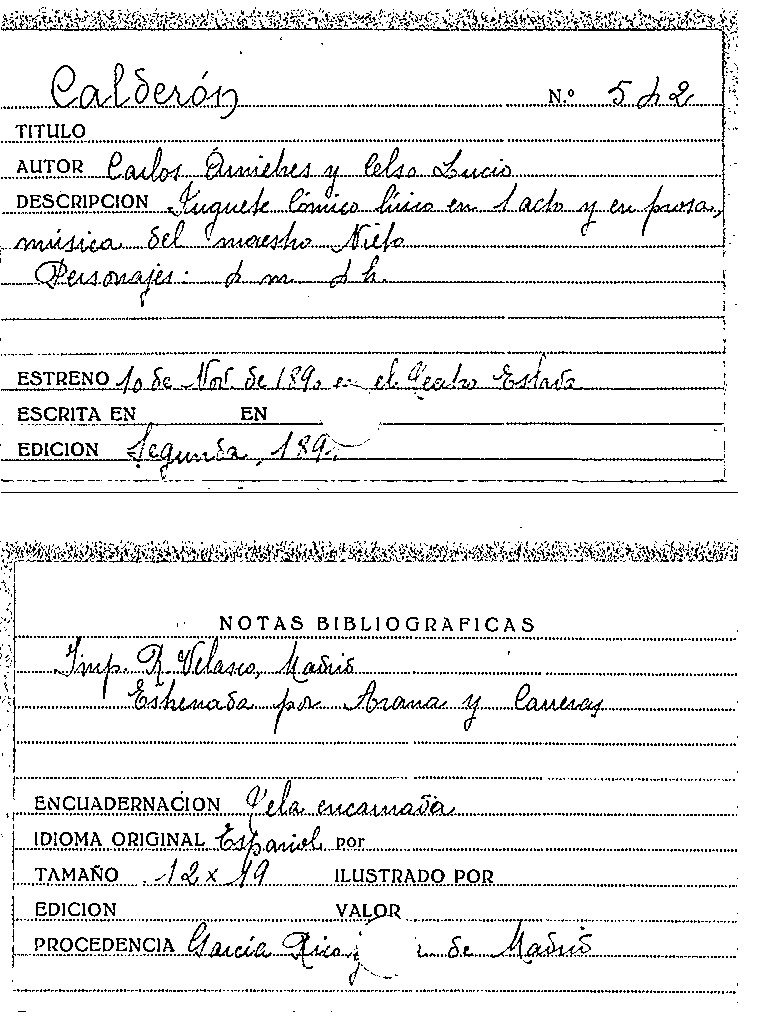 Calderón N.º 542
TITULO
AUTOR Carlos Arniches y Celso Lucio
DESCRIPCION Juguete Cómico lírico en 1 acto y en prosa,
música del maestro Nieto
Personajes: 4 m. 4 h.
ESTRENO 10 de Nov. de 189 en el Teatro Eslava
ESCRITA EN EN
EDICION Segunda, 189
NOTAS BIBLIOGRAFICAS
Imp. R. Velasco, Madrid
Estrenada por Arana y Carreras
ENCUADERNACION Tela encarnada
IDIOMA ORIGINAL Español por
TAMAÑO 12 x 19 ILUSTRADO POR
EDICION VALOR
PROCEDENCIA García Rico y de Madrid